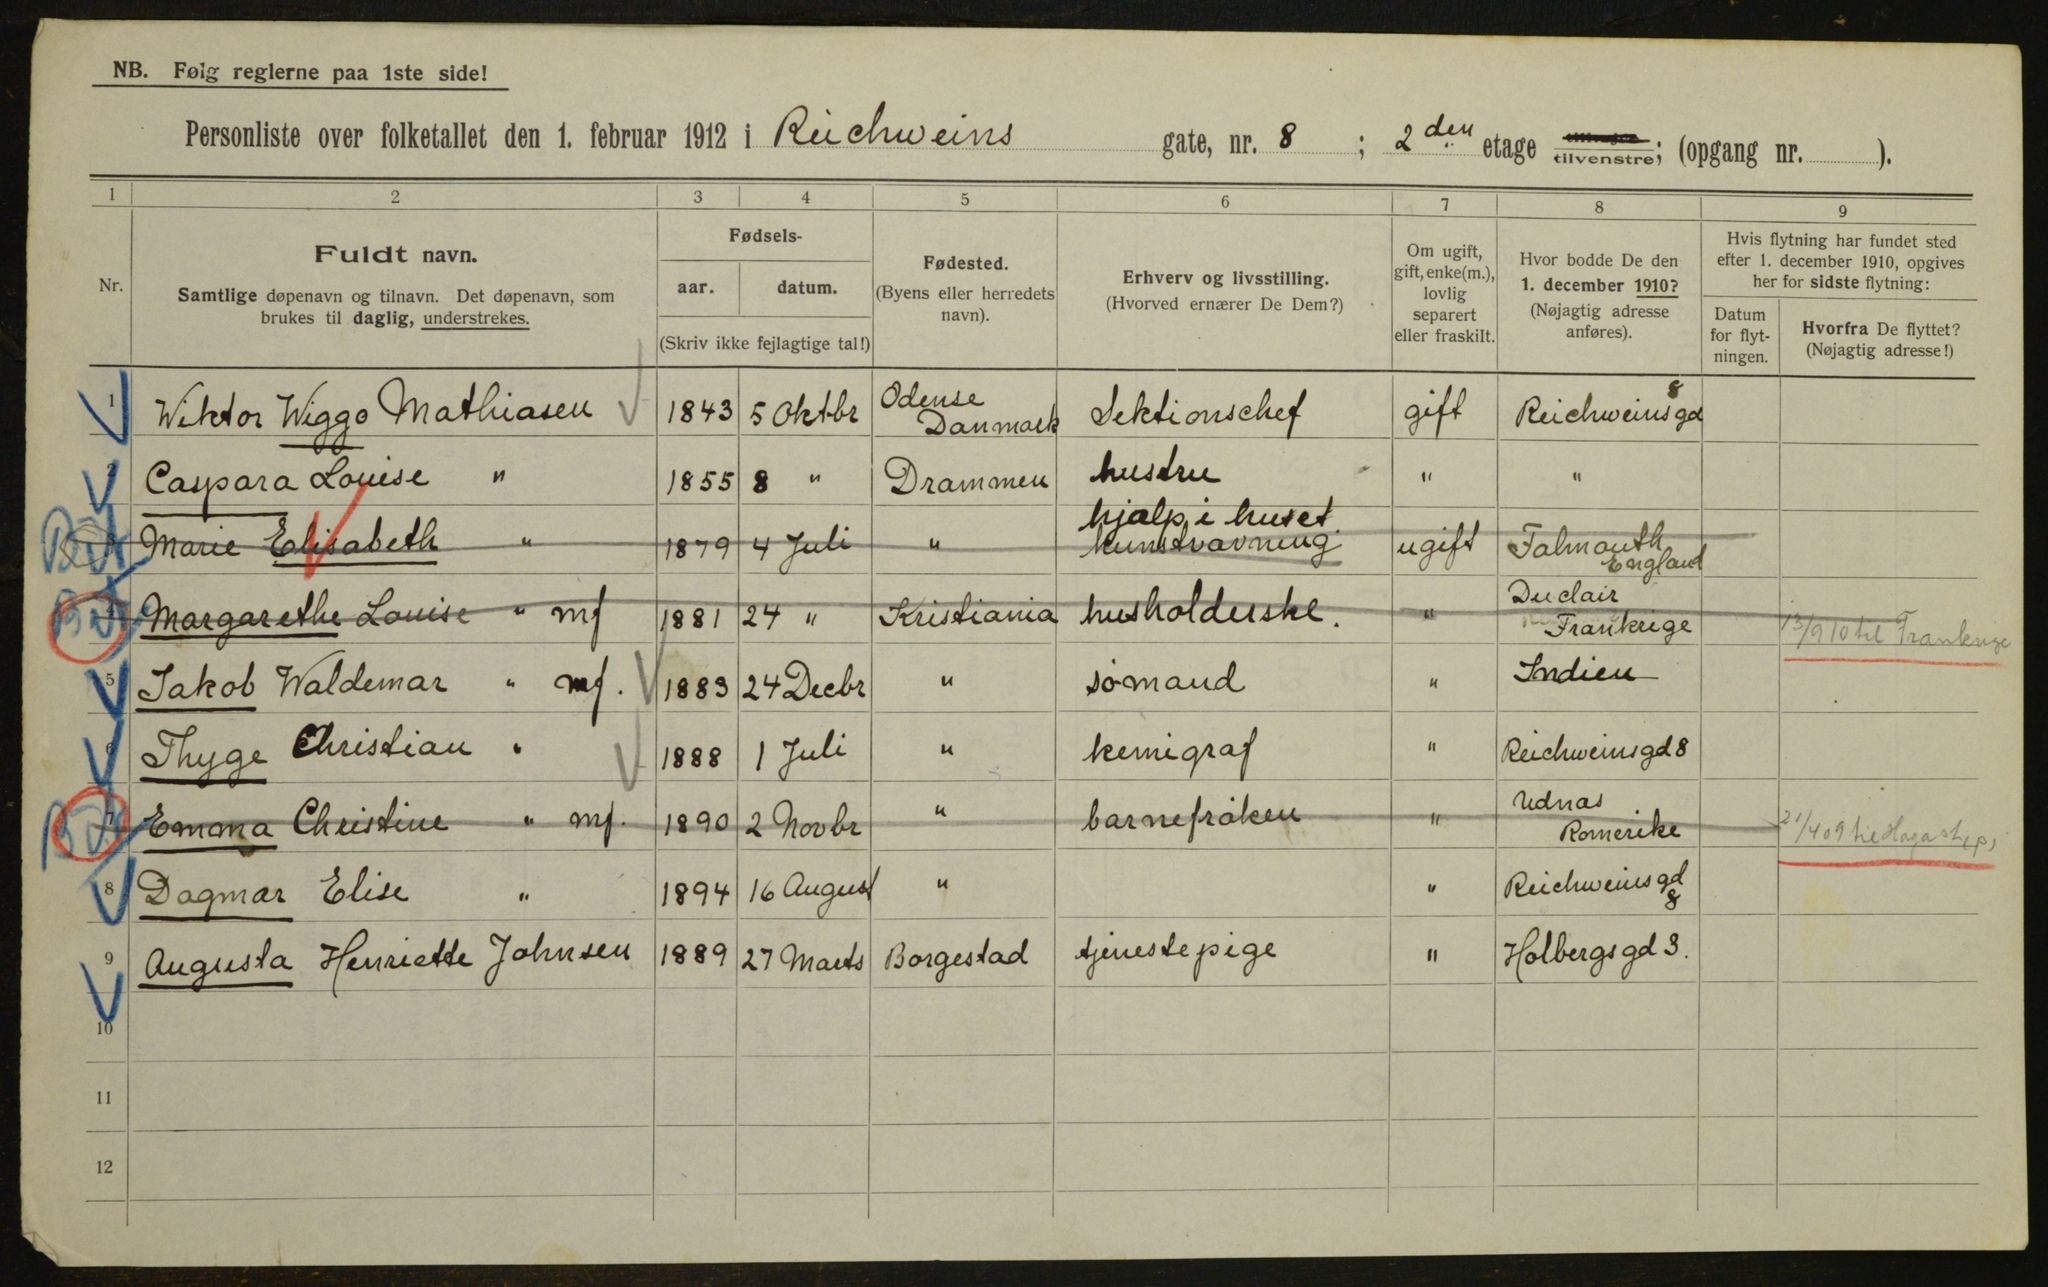 NB. Følg reglerne paa 1ste side!
Personliste over folketallet den 1. februar 1912 i Reichweins gate, nr. 8 ; 2den etage tilvenstre; (opgang nr. ).
1 2 3 4 5 6 7 8 9
Nr.
Fuldt navn.
Samtlige døpenavn og tilnavn. Det døpenavn, som
brukes til daglig, understrekes.
Fødsels-
aar. datum.
(Skriv ikke fejlagtige tal!)
Fødested.
(Byens eller herredets
navn).
Erhverv og livsstilling.
(Hvorved ernærer De Dem?)
Om ugift,
gift, enke(m.),
lovlig
separert
eller fraskilt.
Hvor bodde De den
1. december 1910?
(Nøjagtig adresse
anføres).
Hvis flytning har fundet sted
efter 1. december 1910, opgives
her for sidste flytning:
Datum
for flyt-
ningen.
Hvorfra De flyttet?
(Nøjagtig adresse!)
1 Wiktor Wiggo Mathiasen 1843 5 Oktbr Odense Danmark Sektionschef gift Reichweinsgd 8
2 Caspara Louise " 1855 8 " Drammen hustru " "
3 Marie Elisabeth " 1879 4 Juli " hjælp i huset. kunstvævning ugift Falmouth England
4 Margarethe Louise " mf 1881 24 " Kristiania husholderske. " Duclair Frankrige 13/9 10 til Frankrige
5 Jakob Waldemar " mf. 1883 24 Decbr " sømand " Indien
6 Thyge Christian " 1888 1 Juli " kemigraf " Reichweinsgd 8
7 Emma Christine " mf. 1890 2 Novbr " barnefrøken " Udnæs Romerike 21/4 09 til
8 Dagmar Elise " 1894 16 August " " Reichweinsgd 8
9 Augusta Henriette Johnsen 1889 27 Marts Borgestad tjenestepige " Holbergsgd 3.
10
11
12